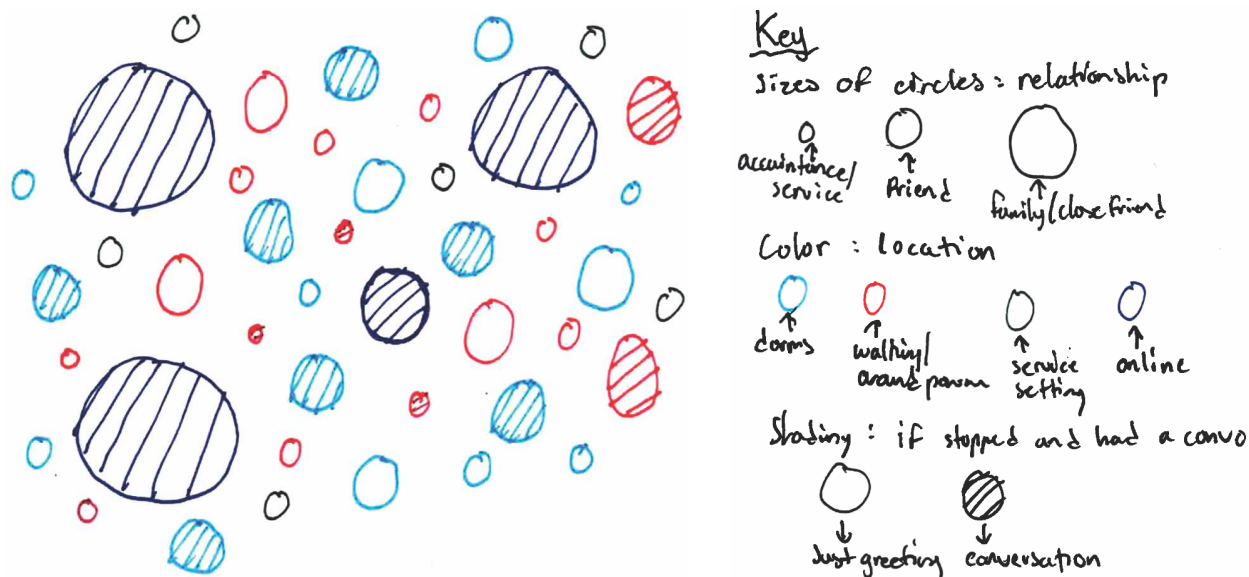 Key
Sizes of circles : relationship
accuintance/
service
Friend
family/close friend
Color : location
dorms
walking/
around
service
setting
online
Shading : if stopped and had a convo
Just greeting
conversation